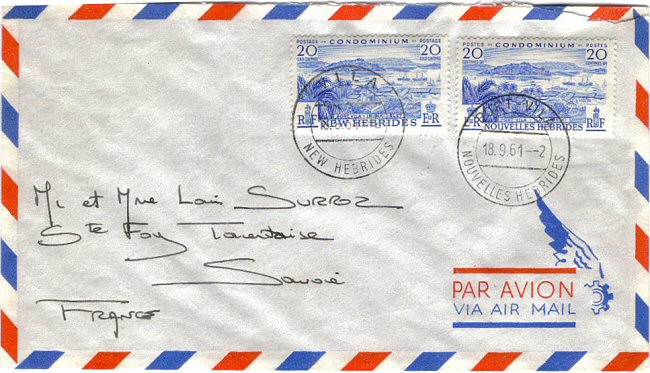 POSTAGE CONDOMINIUM POSTAGE
20 20
GOLD CENTIMES GOLD CENTIMES
PORT VILA
RF NEW HEBRIDES ER
VILA
NEW HEBRIDES
POSTES CONDOMINIUM POSTES
20 20
PORT VILA
ER NOUVELLES HEBRIDES RF
PORT-VILA
18.9.61--2
NOUVELLES HEBRIDES
M. et Mme Louis SURROZ
Ste Foy Tarentaise
Savoie
FRANCE
PAR AVION
VIA AIR MAIL